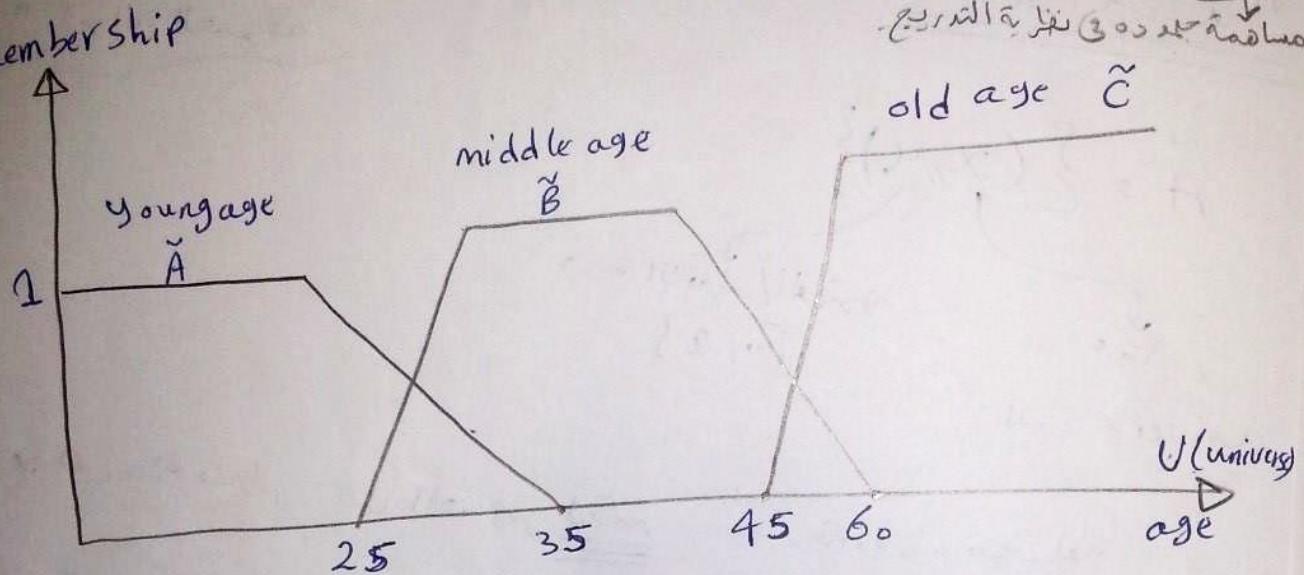 embership
مساهمة جديدة في نظرية التدريج.
old age C̃
middle age
B̃
young age
Ã
1
U (univers)
25
35
45
60
age